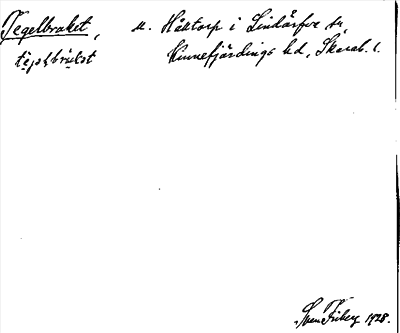 Tegelbruket, u. Håktorp i Lindärfva sn,
Kinnefjärdings hd, Skarab. l.
Sven Friberg 1928.